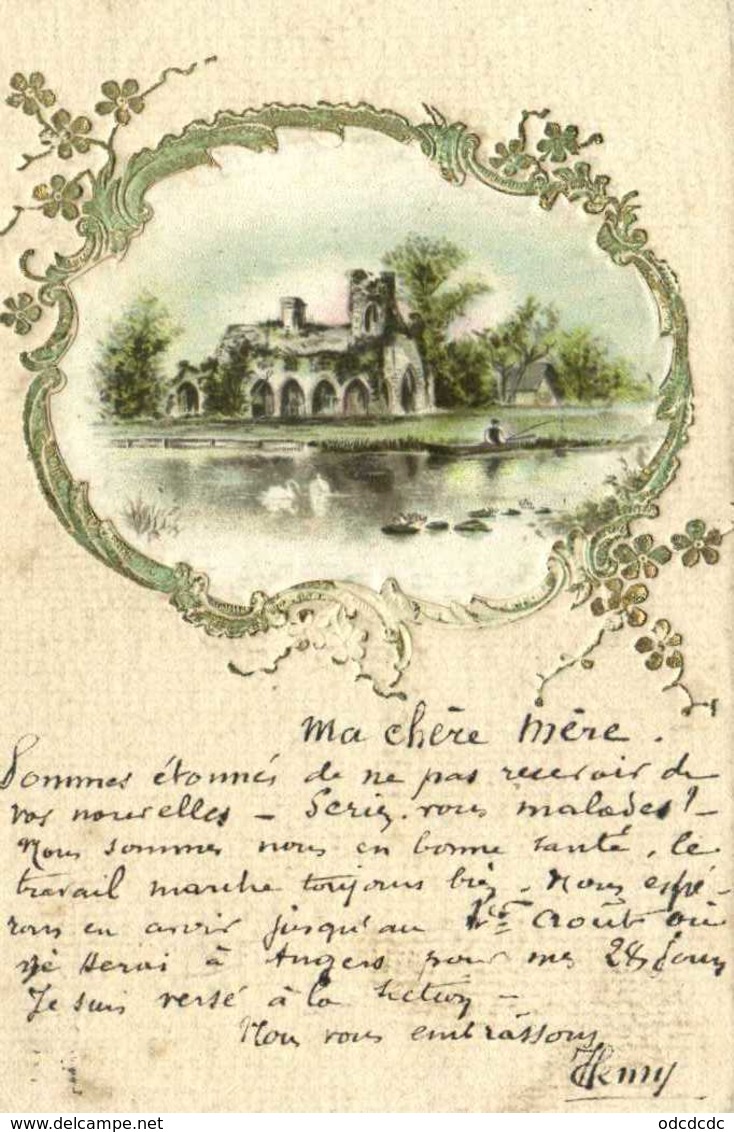 Ma chère Mère.
Sommes étonnés de ne pas recevoir de
vos nouvelles — Seriez-vous malades ? —
Nous sommes nous en bonne santé, le
travail marche toujours bien. Nous espé-
rons en avoir jusqu'au 1er Août où
je serai à Angers pour mes 28 jours
Je suis versé à la section —
Nous vous embrassons
Henry
odcdcdc
delcampe.net